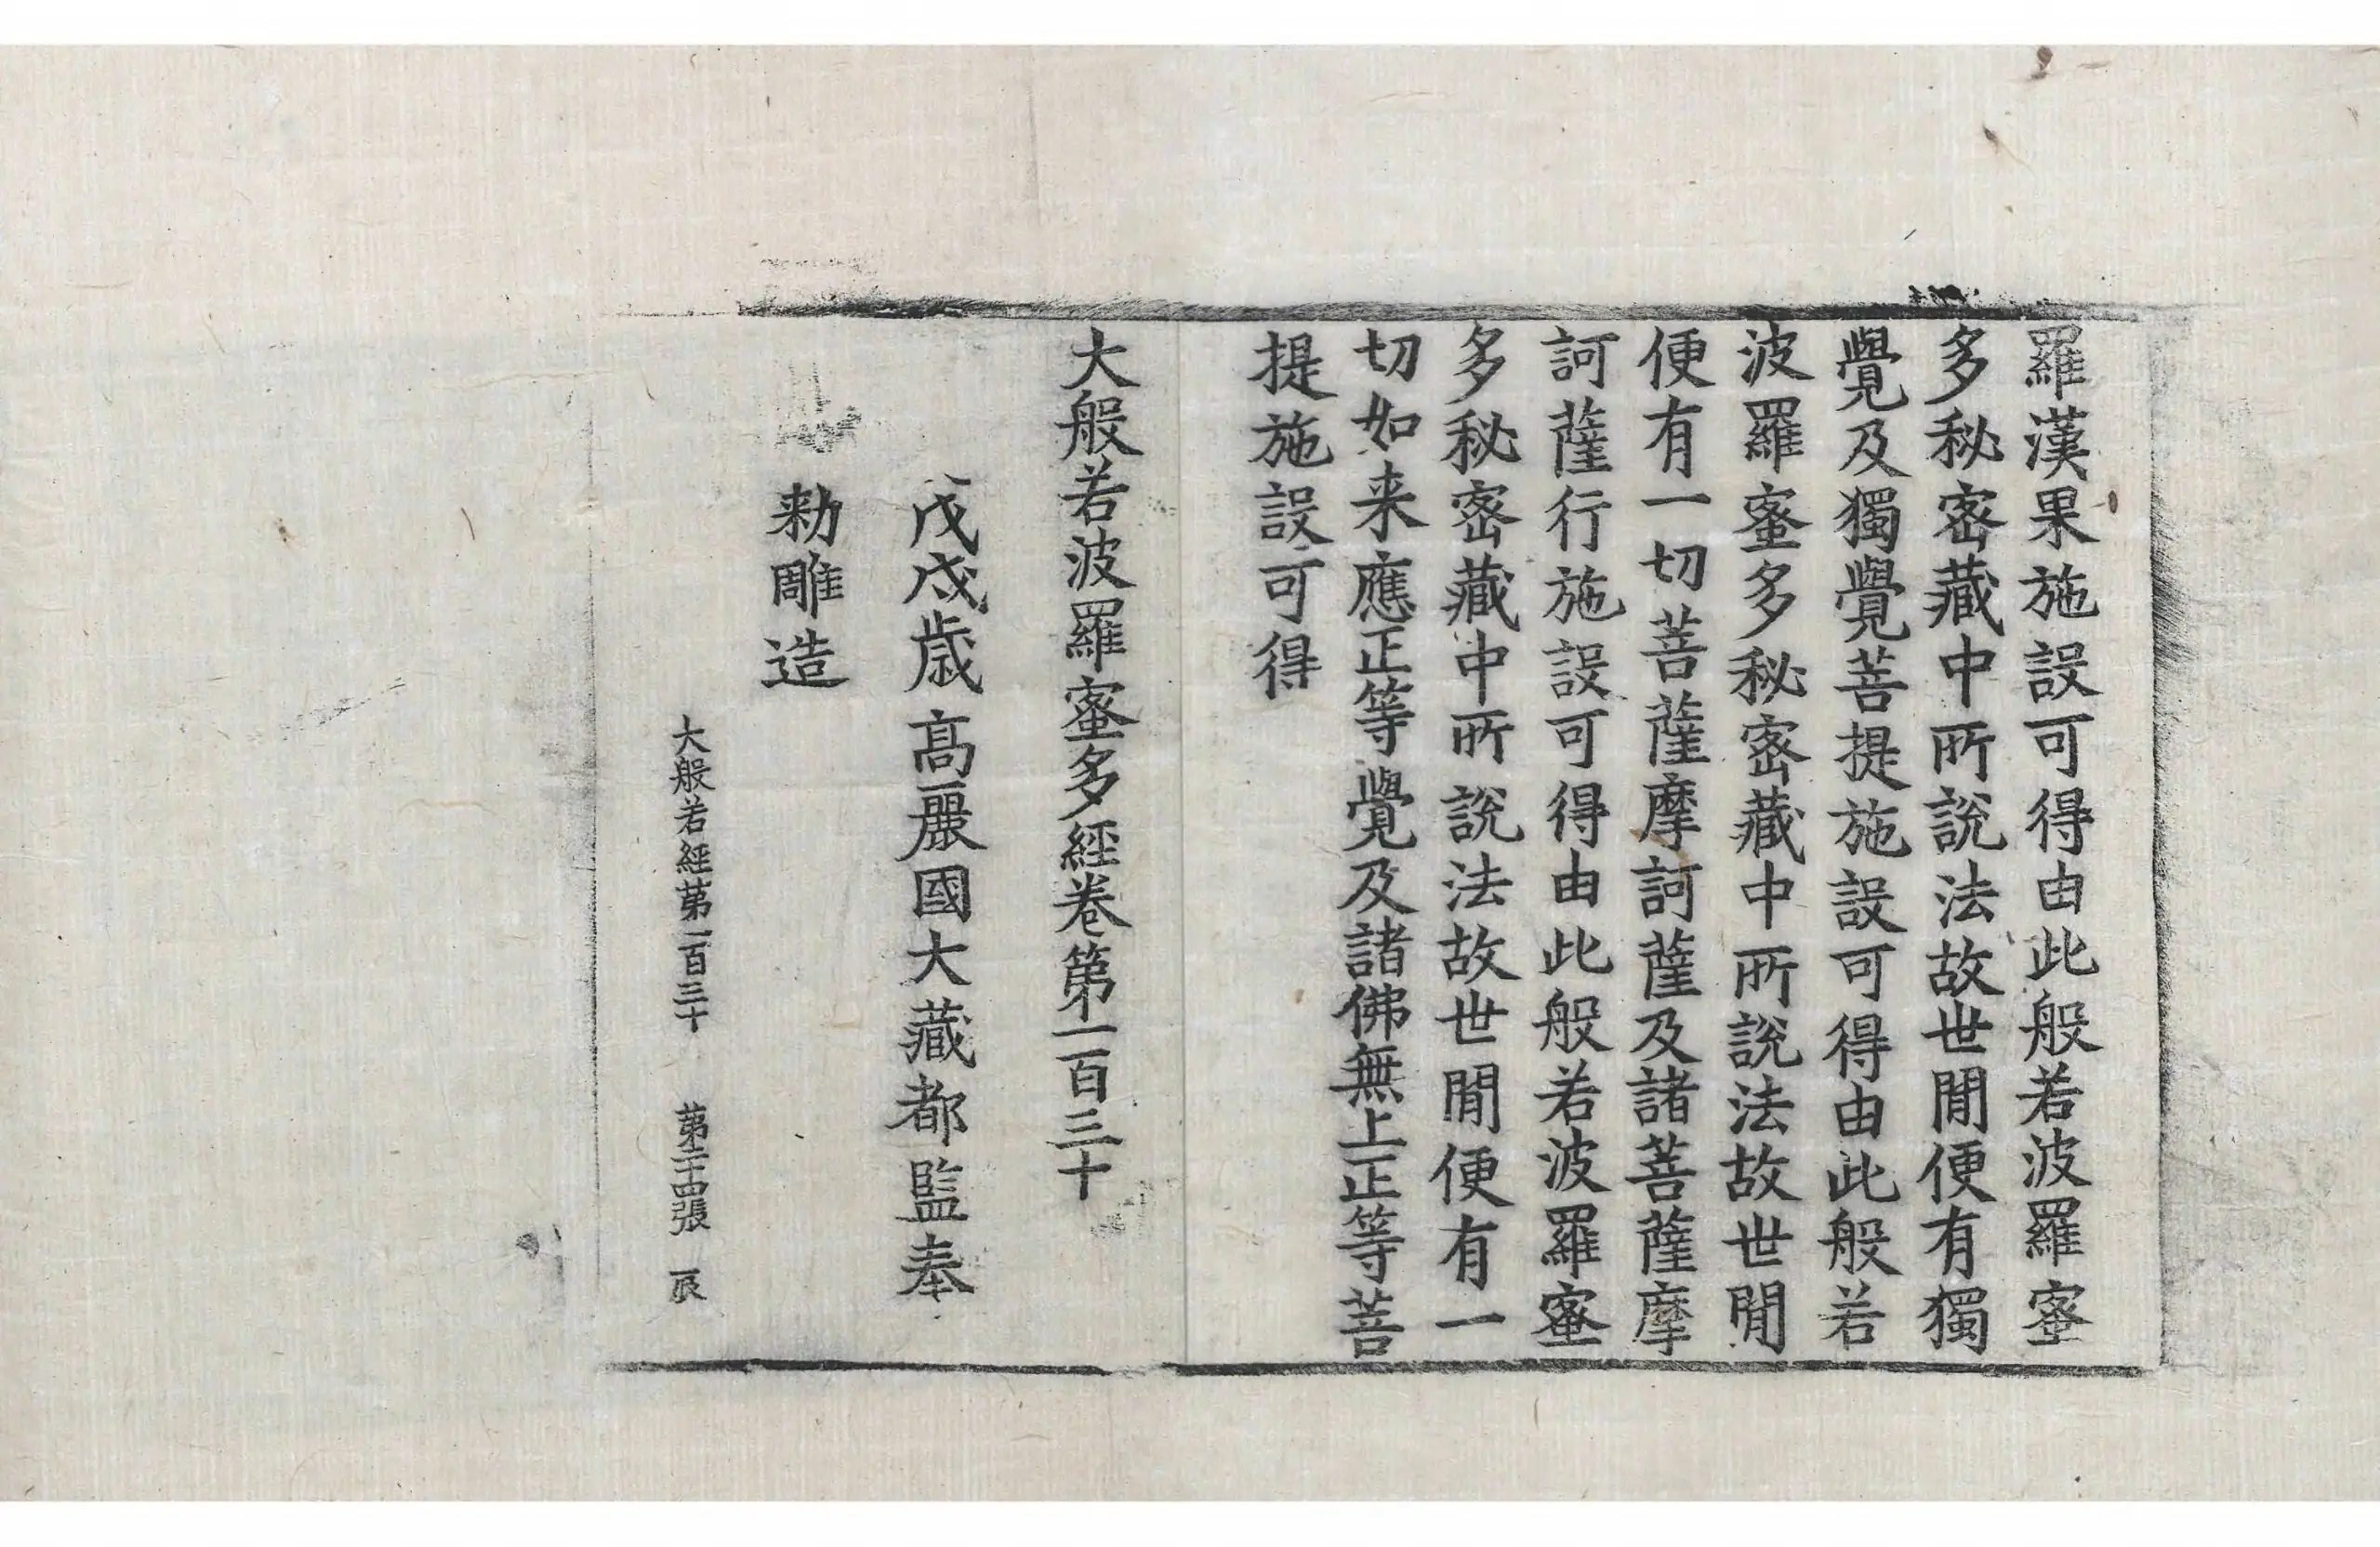 羅漢果施設可得由此般若波羅蜜
多秘密藏中所說法故世閒便有獨
覺及獨覺菩提施設可得由此般若
波羅蜜多秘密藏中所說法故世閒
便有一切菩薩摩訶薩及諸菩薩摩
訶薩行施設可得由此般若波羅蜜
多秘密藏中所說法故世閒便有一
切如来應正等覺及諸佛無上正等菩
提施設可得
大般若波羅蜜多經卷第一百三十
戊戌歲高麗國大藏都監奉
勅雕造
大般若經第一百三十 第二十四張 辰